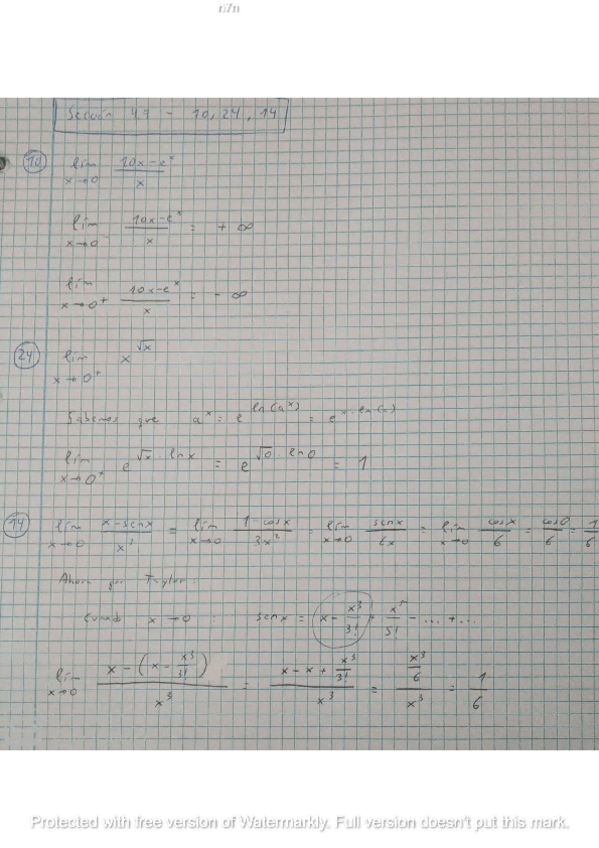 n7n
Sección 4.7 - 10, 24, 14
10 lim x→0 (10x-e^x)/x
lim x→0⁻ (10x-e^x)/x = +∞
lim x→0⁺ (10x-e^x)/x = -∞
24 lim x→0⁺ x^√x
Sabemos que a^x = e^ln(a^x) = e^x·ln(a)
lim x→0⁺ e^√x · ln x = e^√0 · ln 0 = 1
14 lim x→0 (x-senx)/x³ = lim x→0 (1-cosx)/3x² = lim x→0 senx/6x = lim x→0 cosx/6 = cos0/6 = 1/6
Ahora por Taylor:
Cuando x→0 : senx = x - x³/3! + x⁵/5! - ... + ...
lim x→0 (x-(x-x³/3!))/x³ = (x-x+x³/3!)/x³ = (x³/6)/x³ = 1/6
Protected with free version of Watermarkly. Full version doesn't put this mark.